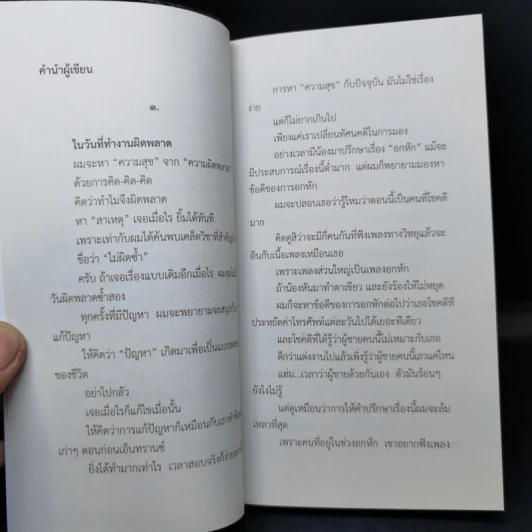 คำนำผู้เขียน
๑.
ในวันที่ทำงานผิดพลาด
ผมจะหา “ความสุข” จาก “ความผิดพลาด”
ด้วยการคิด-คิด-คิด
คิดว่าทำไมจึงผิดพลาด
หา “สาเหตุ” เจอเมื่อไร ยิ้มได้ทันที
เพราะเท่ากับผมได้ค้นพบเคล็ดวิชาที่สำคัญ
ชื่อว่า “ไม่ผิดซ้ำ”
ครับ ถ้าเจอเรื่องแบบเดิมอีกเมื่อไร ผมจะไม่
วันผิดพลาดซ้ำสอง
ทุกครั้งที่มีปัญหา ผมจะพยายามจะสนุกกับ
แก้ปัญหา
ให้คิดว่า “ปัญหา” เกิดมาเพื่อเป็น
ของชีวิต
อย่าไปกลัว
เจอเมื่อไรก็แก้ไขเมื่อนั้น
ให้คิดว่าการแก้ปัญหาก็เหมือนกับเรา
เก่าๆ ตอนก่อนเอ็นทรานซ์
ยิ่งได้ทำมากเท่าไร เวลาสอบจริงก็
การหา “ความสุข” กับปัจจุบัน มันไม่ใช่เรื่อง
ง่าย
แต่ก็ไม่ยากเกินไป
เพียงแค่เราเปลี่ยนทัศนคติในการมอง
อย่างเวลามีน้องมาปรึกษาเรื่อง “อกหัก” แม้จะ
มีประสบการณ์เรื่องนี้ต่ำมาก แต่ผมก็พยายามมองหา
ข้อดีของการอกหัก
ผมจะปลอบเธอว่ารู้ไหมว่าตอนนี้เป็นคนที่โชคดี
มาก
คิดดูสิว่าจะมีกี่คนกันที่ฟังเพลงทางวิทยุแล้วจะ
อินกับเนื้อเพลงเหมือนเธอ
เพราะเพลงส่วนใหญ่เป็นเพลงอกหัก
ถ้าน้องหันมาทำตาเขียว และยังร้องไห้ไม่หยุด
ผมก็จะหาข้อดีของการอกหักต่อไปว่าเธอโชคดีที่
ประหยัดค่าโทรศัพท์แต่ละวันไปได้เยอะทีเดียว
และโชคดีที่ได้รู้ว่าผู้ชายคนนี้ไม่เหมาะกับเธอ
ดีกว่าแต่งงานไปแล้วเพิ่งรู้ว่าผู้ชายคนนี้เลวแค่ไหน
แฮ่ม...เวลาว่าผู้ชายด้วยกันเอง ตัวมันร้อนๆ
ยังไงไม่รู้
แต่ดูเหมือนว่าการให้คำปรึกษาเรื่องนี้ผมจะล้ม
เหลวที่สุด
เพราะคนที่อยู่ในช่วงอกหัก เขาอยากฟังเพลง